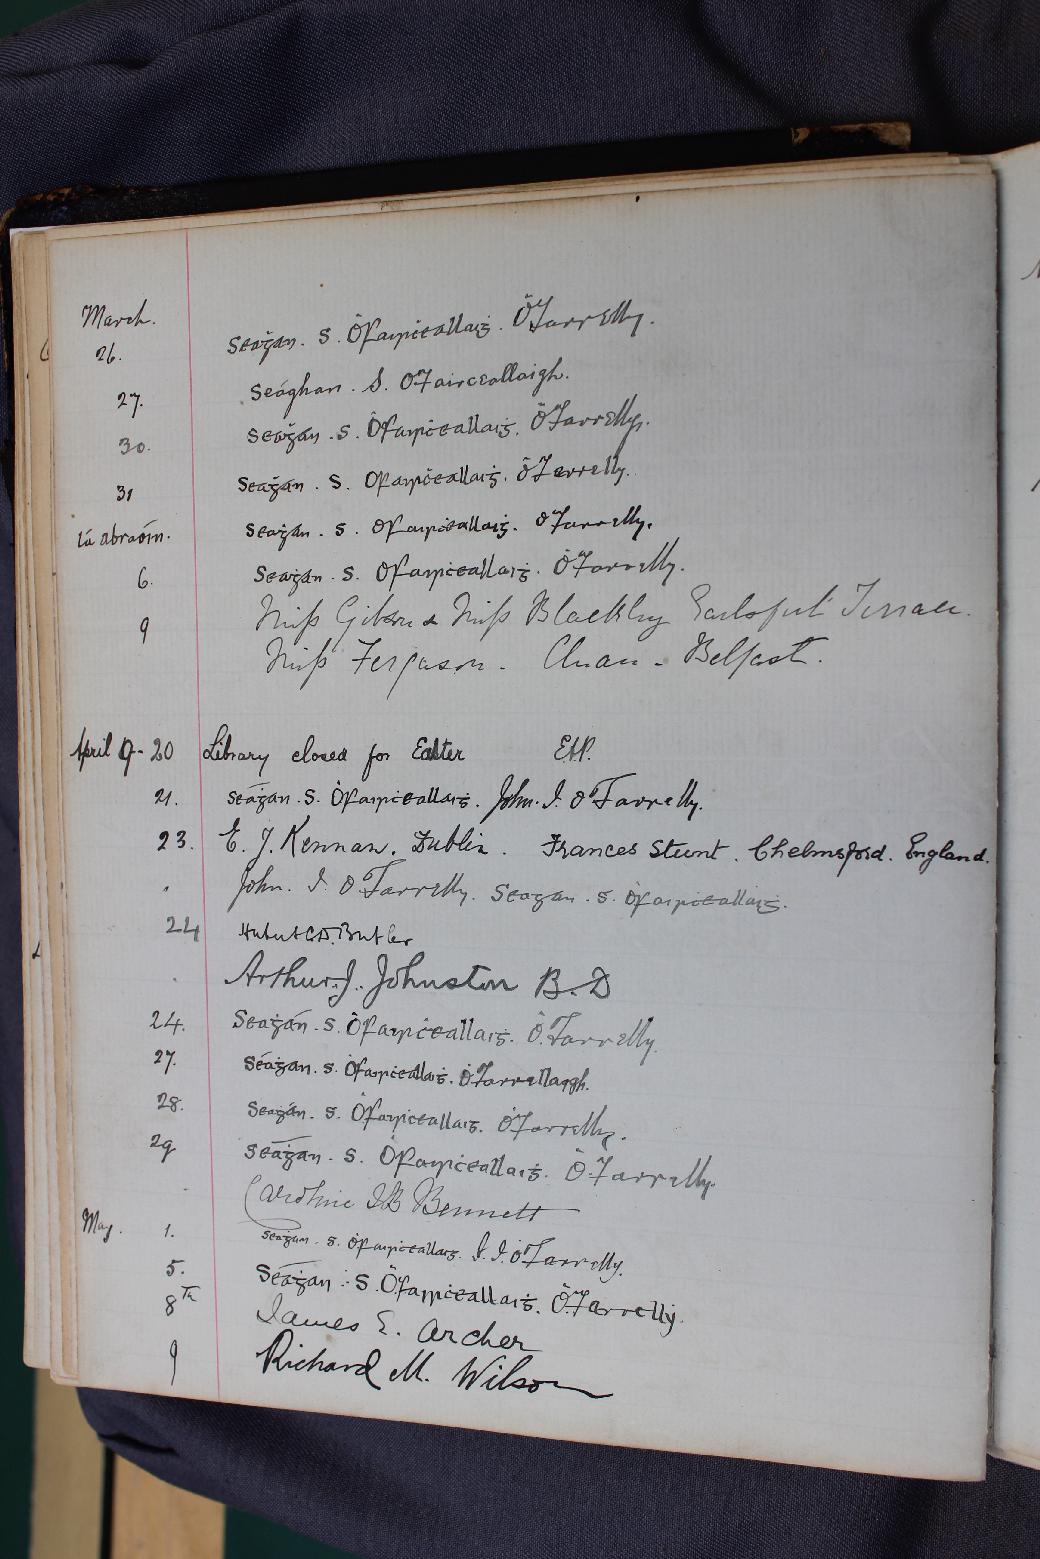 March.
26. Seaġán. S. ÓFairċeallaiġ. O'Farrelly.
27. Seághan. S. O'Fairceallaigh.
30. Seaġán. S. ÓFairċeallaiġ. O'Farrelly.
31 Seaġán. S. ÓFairċeallaiġ. O'Farrelly.
Seaġán. S. ÓFairċeallaiġ. O'Farrelly.
6. Seaġán. S. ÓFairċeallaiġ. O'Farrelly.
9 Miss Gibson & Miss Blackley Earlsfort Terrace.
Miss Ferguson - Cluan - Belfast.
April 9-20 Library closed for Easter
21. Seaġán. S. ÓFairċeallaiġ. John. I. O'Farrelly.
23. E. J. Kennan. Dublin. Frances Stunt. Chelmsford. England.
John. I. O'Farrelly. Seaġán. S. ÓFairċeallaiġ.
24 Hubert G.D. Butler
Arthur J. Johnston B.D
24. Seaġán. S. ÓFairċeallaiġ. O'Farrelly.
27. Seaġán. S. ÓFairċeallaiġ. O'Farrellaigh.
28. Seaġán. S. ÓFairċeallaiġ. O'Farrelly.
29 Seaġán. S. ÓFairċeallaiġ. O'Farrelly.
Caroline I B Bennett
May. 1. Seaġán. S. ÓFairċeallaiġ. J. I. O'Farrelly.
5. Seaġán. S. ÓFairċeallaiġ. O'Farrelly.
8th James E. Archer
9 Richard M. Wilson